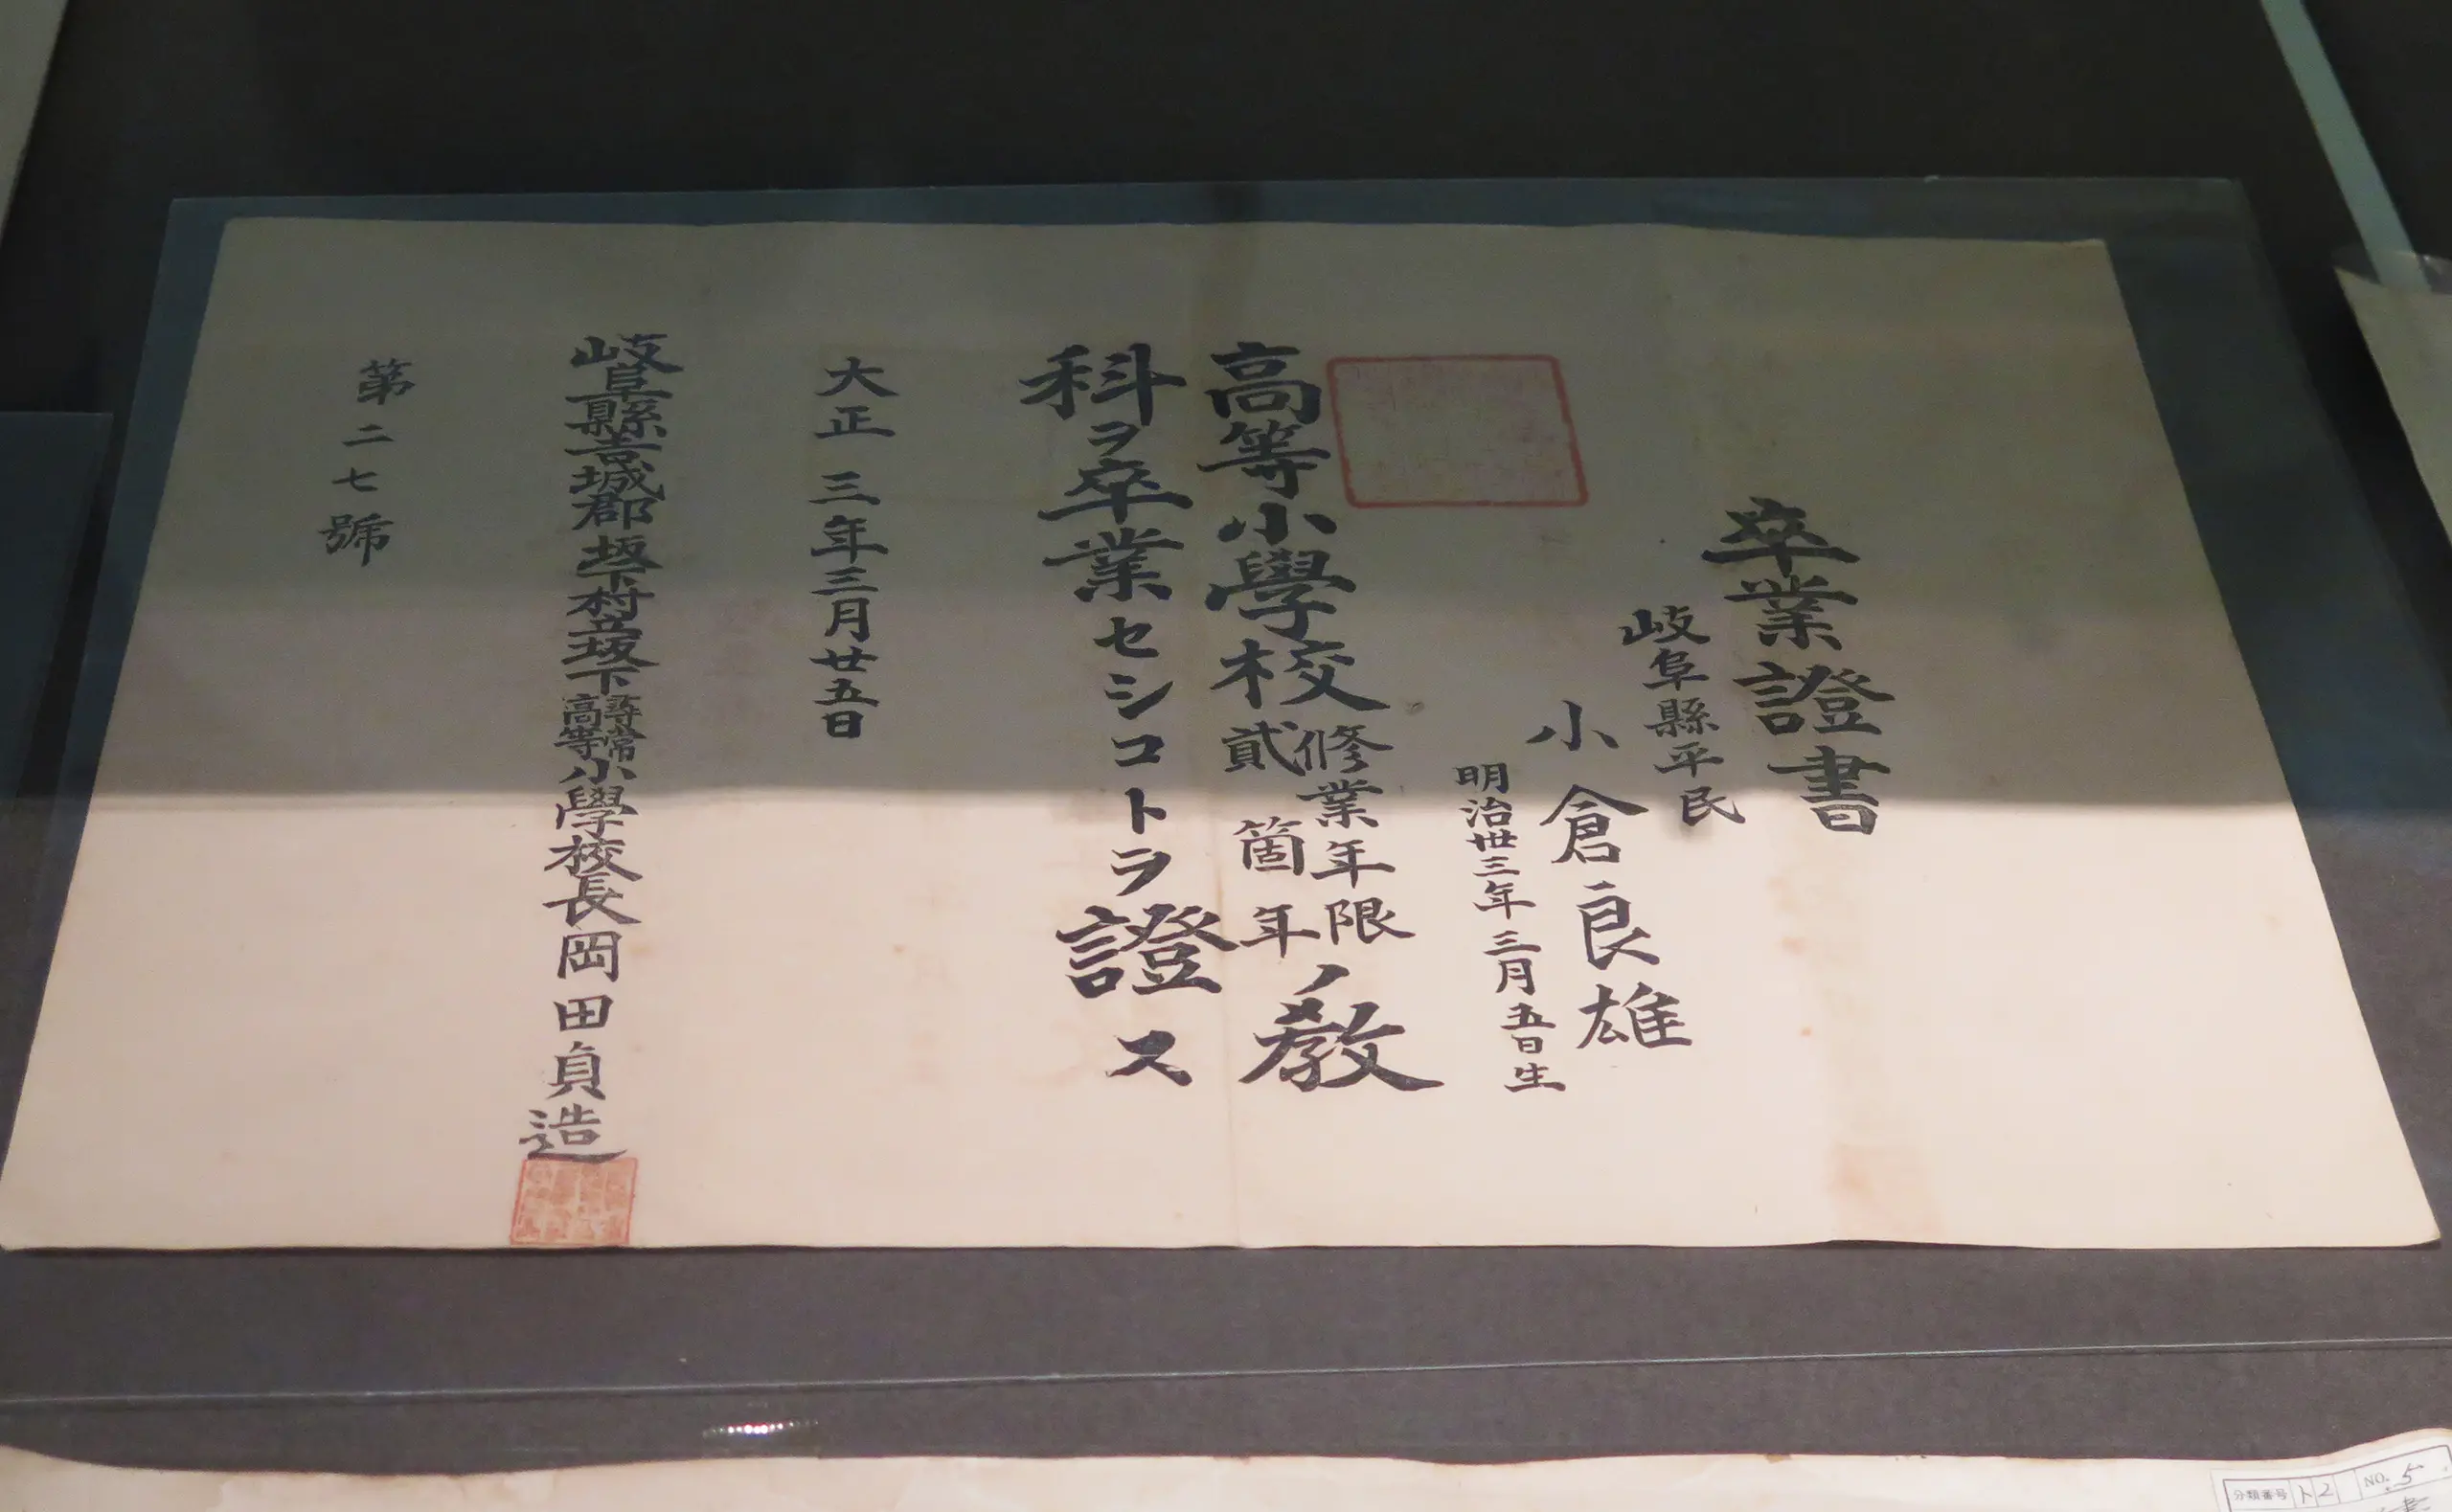 卒業證書
岐阜縣平民
小倉良雄
明治卅三年三月五日生
高等小學校修業年限貳箇年ノ教
科ヲ卒業セシコトヲ證ス
大正三年三月廿五日
岐阜縣吉城郡坂下村立坂下尋常高等小學校長岡田貞造
第二七號
分類番号 ト2 NO. 5